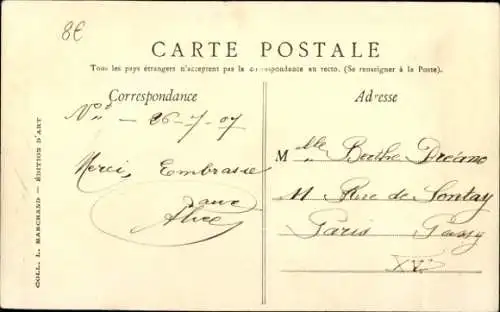 8€
CARTE POSTALE
Tous les pays étrangers n'acceptent pas la correspondance au recto. (Se renseigner à la Poste).
Correspondance
26-7-07
Merci, Embrasse
Alice
COLL. L. MARCHAND — ÉDITION D'ART
Adresse
Mlle Berthe
11 Rue de Lontay
Paris Passy